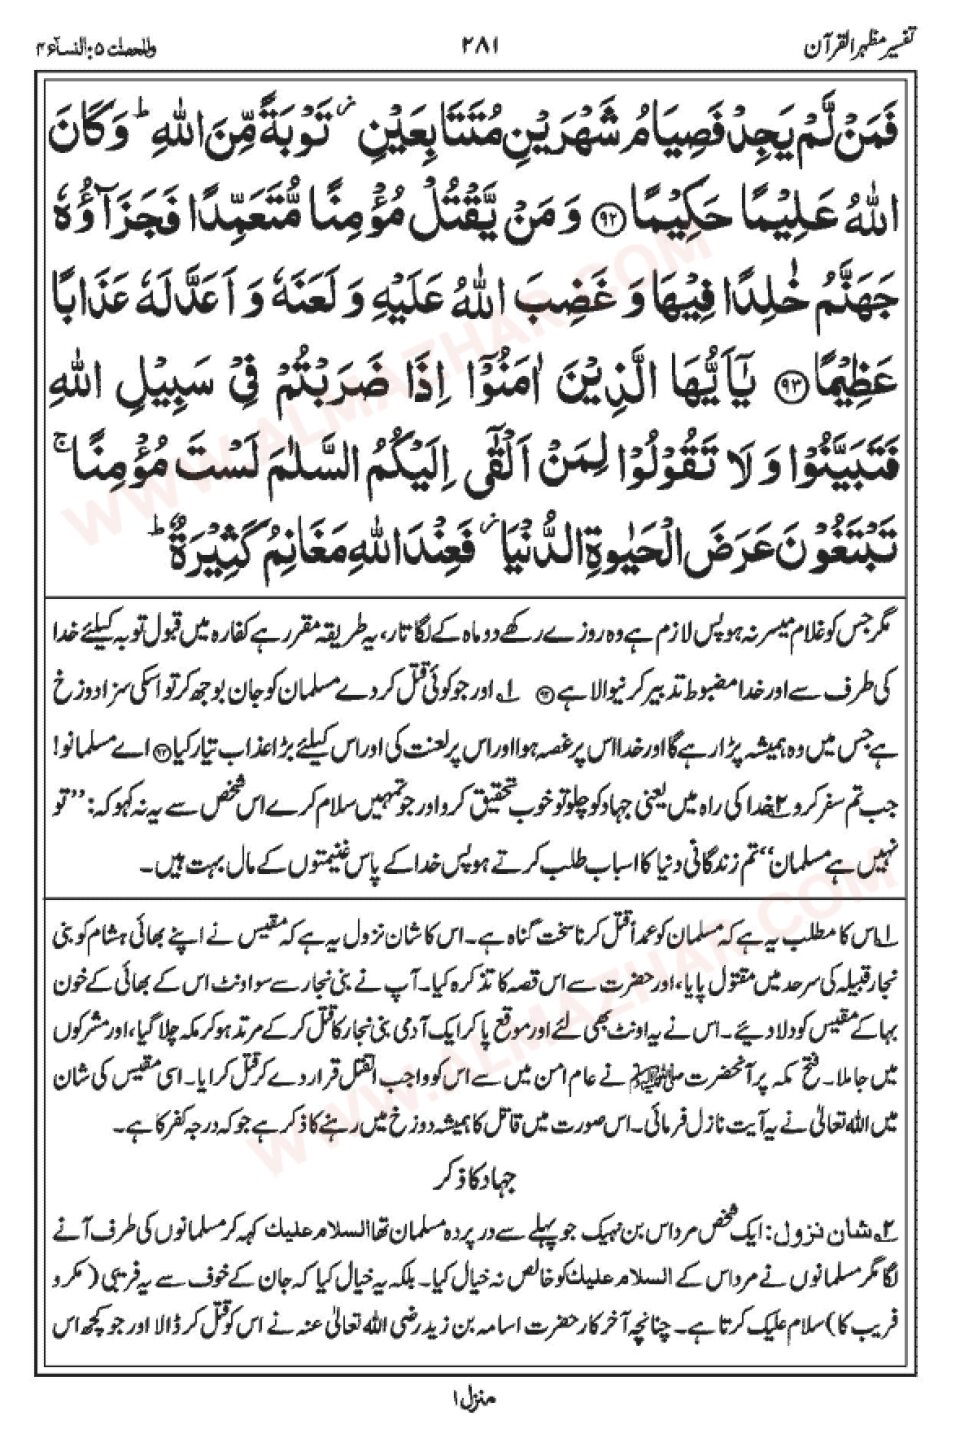 تفسیر مظہر القرآن ۲۸۱ والمحصنت ۵: النسآء ۴
فَمَنْ لَّمْ یَجِدْ فَصِیَامُ شَهْرَیْنِ مُتَتَابِعَیْنِ ز تَوْبَةً مِّنَ اللهِ ؕ وَكَانَ
اللهُ عَلِیْمًا حَكِیْمًا ﴿۹۲﴾ وَمَنْ یَّقْتُلْ مُؤْمِنًا مُّتَعَمِّدًا فَجَزَآؤُهٗ
جَهَنَّمُ خٰلِدًا فِیْهَا وَ غَضِبَ اللهُ عَلَیْهِ وَ لَعَنَهٗ وَ اَعَدَّ لَهٗ عَذَابًا
عَظِیْمًا ﴿۹۳﴾ یٰۤاَیُّهَا الَّذِیْنَ اٰمَنُوْۤا اِذَا ضَرَبْتُمْ فِیْ سَبِیْلِ اللهِ
فَتَبَیَّنُوْا وَ لَا تَقُوْلُوْا لِمَنْ اَلْقٰۤی اِلَیْكُمُ السَّلٰمَ لَسْتَ مُؤْمِنًا ۚ
تَبْتَغُوْنَ عَرَضَ الْحَیٰوةِ الدُّنْیَا ز فَعِنْدَ اللهِ مَغَانِمُ كَثِیْرَةٌ ؕ
مگر جس کو غلام میسر نہ ہو پس لازم ہے وہ روزے رکھے دو ماہ کے لگا تار، یہ طریقہ مقرر ہے کفارہ میں قبول توبہ کیلئے خدا
کی طرف سے اور خدا مضبوط تدبیر کرنیوالا ہے ﴿۹۲﴾ ۱؎ اور جو کوئی قتل کر دے مسلمان کو جان بوجھ کر تو اسکی سزا دوزخ
ہے جس میں وہ ہمیشہ پڑا رہے گا اور خدا اس پر غصہ ہوا اور اس پر لعنت کی اور اس کیلئے بڑا عذاب تیار کیا ﴿۹۳﴾ اے مسلمانو!
جب تم سفر کرو ۲؎ خدا کی راہ میں یعنی جہاد کو چلو تو خوب تحقیق کرو اور جو تمہیں سلام کرے اس شخص سے یہ نہ کہو کہ: ’’تو
نہیں ہے مسلمان‘‘ تم زندگانی دنیا کا اسباب طلب کرتے ہو پس خدا کے پاس غنیمتوں کے مال بہت ہیں۔
۱؎ اس کا مطلب یہ ہے کہ مسلمان کو عمداً قتل کرنا سخت گناہ ہے۔ اس کا شان نزول یہ ہے کہ مقیس نے اپنے بھائی ہشام کو بنی
نجار قبیلہ کی سرحد میں مقتول پایا، اور حضرت سے اس قصہ کا تذکرہ کیا۔ آپ نے بنی نجار سے سو اونٹ اس کے بھائی کے خون
بہا کے مقیس کو دلا دیئے۔ اس نے یہ اونٹ بھی لئے اور موقع پا کر ایک آدمی بنی نجار کا قتل کر کے مرتد ہو کر مکہ چلا گیا، اور مشرکوں
میں جا ملا۔ فتح مکہ پر آنحضرت ﷺ نے عام امن میں سے اس کو واجب القتل قرار دے کر قتل کرایا۔ اسی مقیس کی شان
میں اللہ تعالیٰ نے یہ آیت نازل فرمائی۔ اس صورت میں قاتل کا ہمیشہ دوزخ میں رہنے کا ذکر ہے جو کہ درجہ کفر کا ہے۔
جہاد کا ذکر
۲؎ شان نزول: ایک شخص مرداس بن نہیک جو پہلے سے در پردہ مسلمان تھا السلام علیك کہہ کر مسلمانوں کی طرف آنے
لگا مگر مسلمانوں نے مرداس کے السلام علیك کو خالص نہ خیال کیا۔ بلکہ یہ خیال کیا کہ جان کے خوف سے یہ فریبی (مکر و
فریب کا) سلام علیک کرتا ہے۔ چنانچہ آخر کار حضرت اسامہ بن زید رضی اللہ تعالیٰ عنہ نے اس کو قتل کر ڈالا اور جو کچھ اس
منزل ۱
WWW.ALMAZHAR.COM
WWW.ALMAZHAR.COM